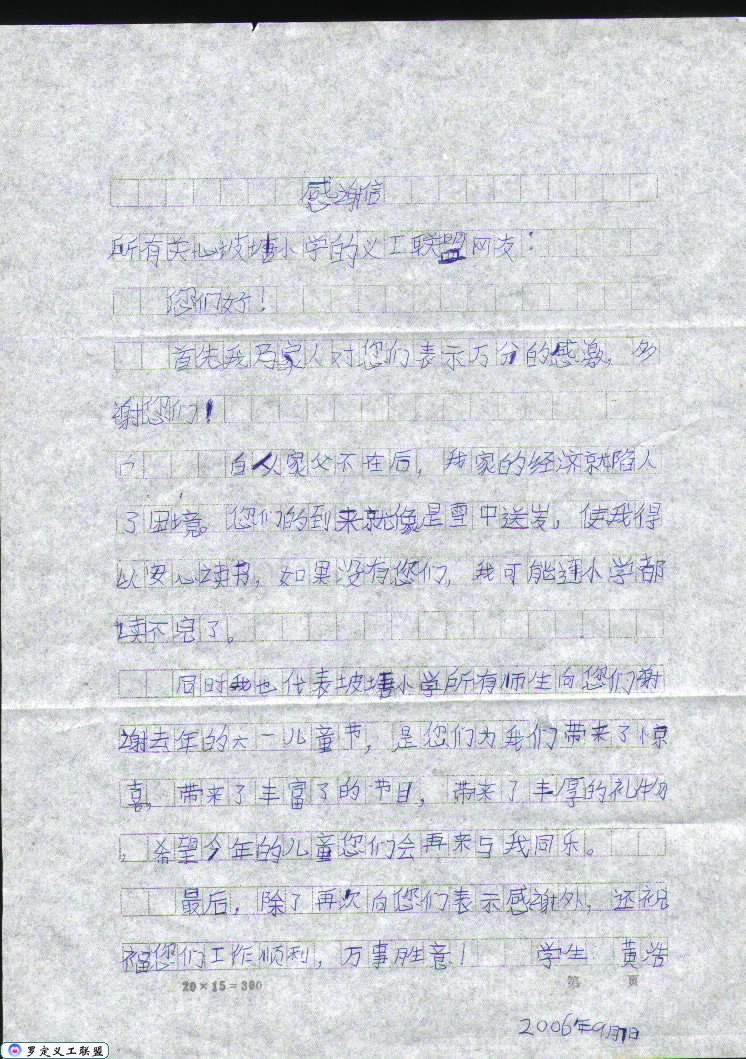 感谢信
所有关心坡塘小学的义工联盟网友：
您们好！
首先我乃家人对您们表示万分的感激，多
谢您们！
自从家父不在后，我家的经济就陷入
了困境。您们的到来就像是雪中送炭，使我得
以安心读书，如果没有您们，我可能连小学都
读不完了。
同时我也代表坡塘小学所有师生向您们谢
谢去年的六一儿童节，是您们为我们带来了惊
喜，带来了丰富了的节日，带来了丰厚的礼物
。希望今年的儿童您们会再来与我同乐。
最后，除了再次向您们表示感谢外，还祝
福您们工作顺利，万事胜意！ 学生 黄浩
20×15=300 第 页
2006年9月1日
罗定义工联盟